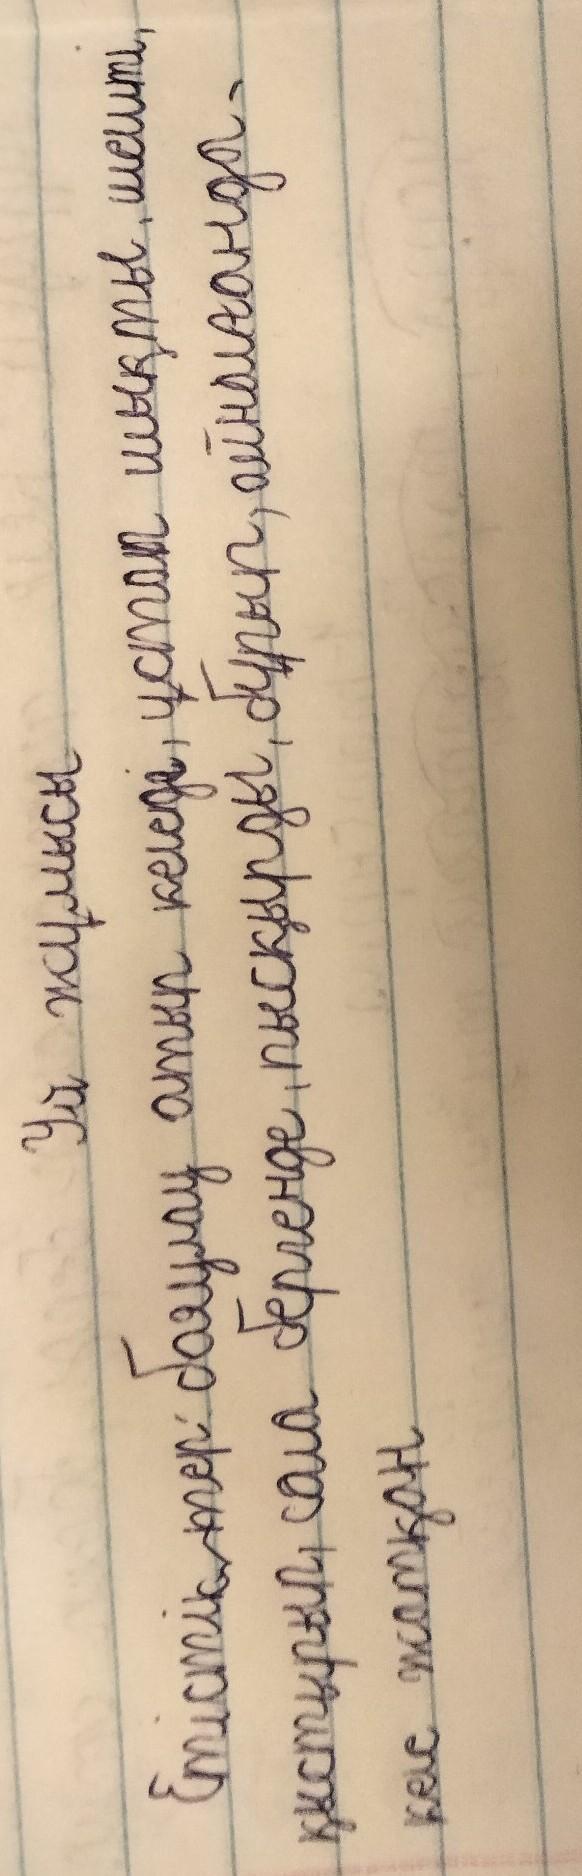 Үй жұмысы
Етістіктер: баяулау атып келеді, ұстап шықты, шешті,
қыстырып, сала бергенде, пысқырды, бұрып, айналғанда,
кеже жатқан